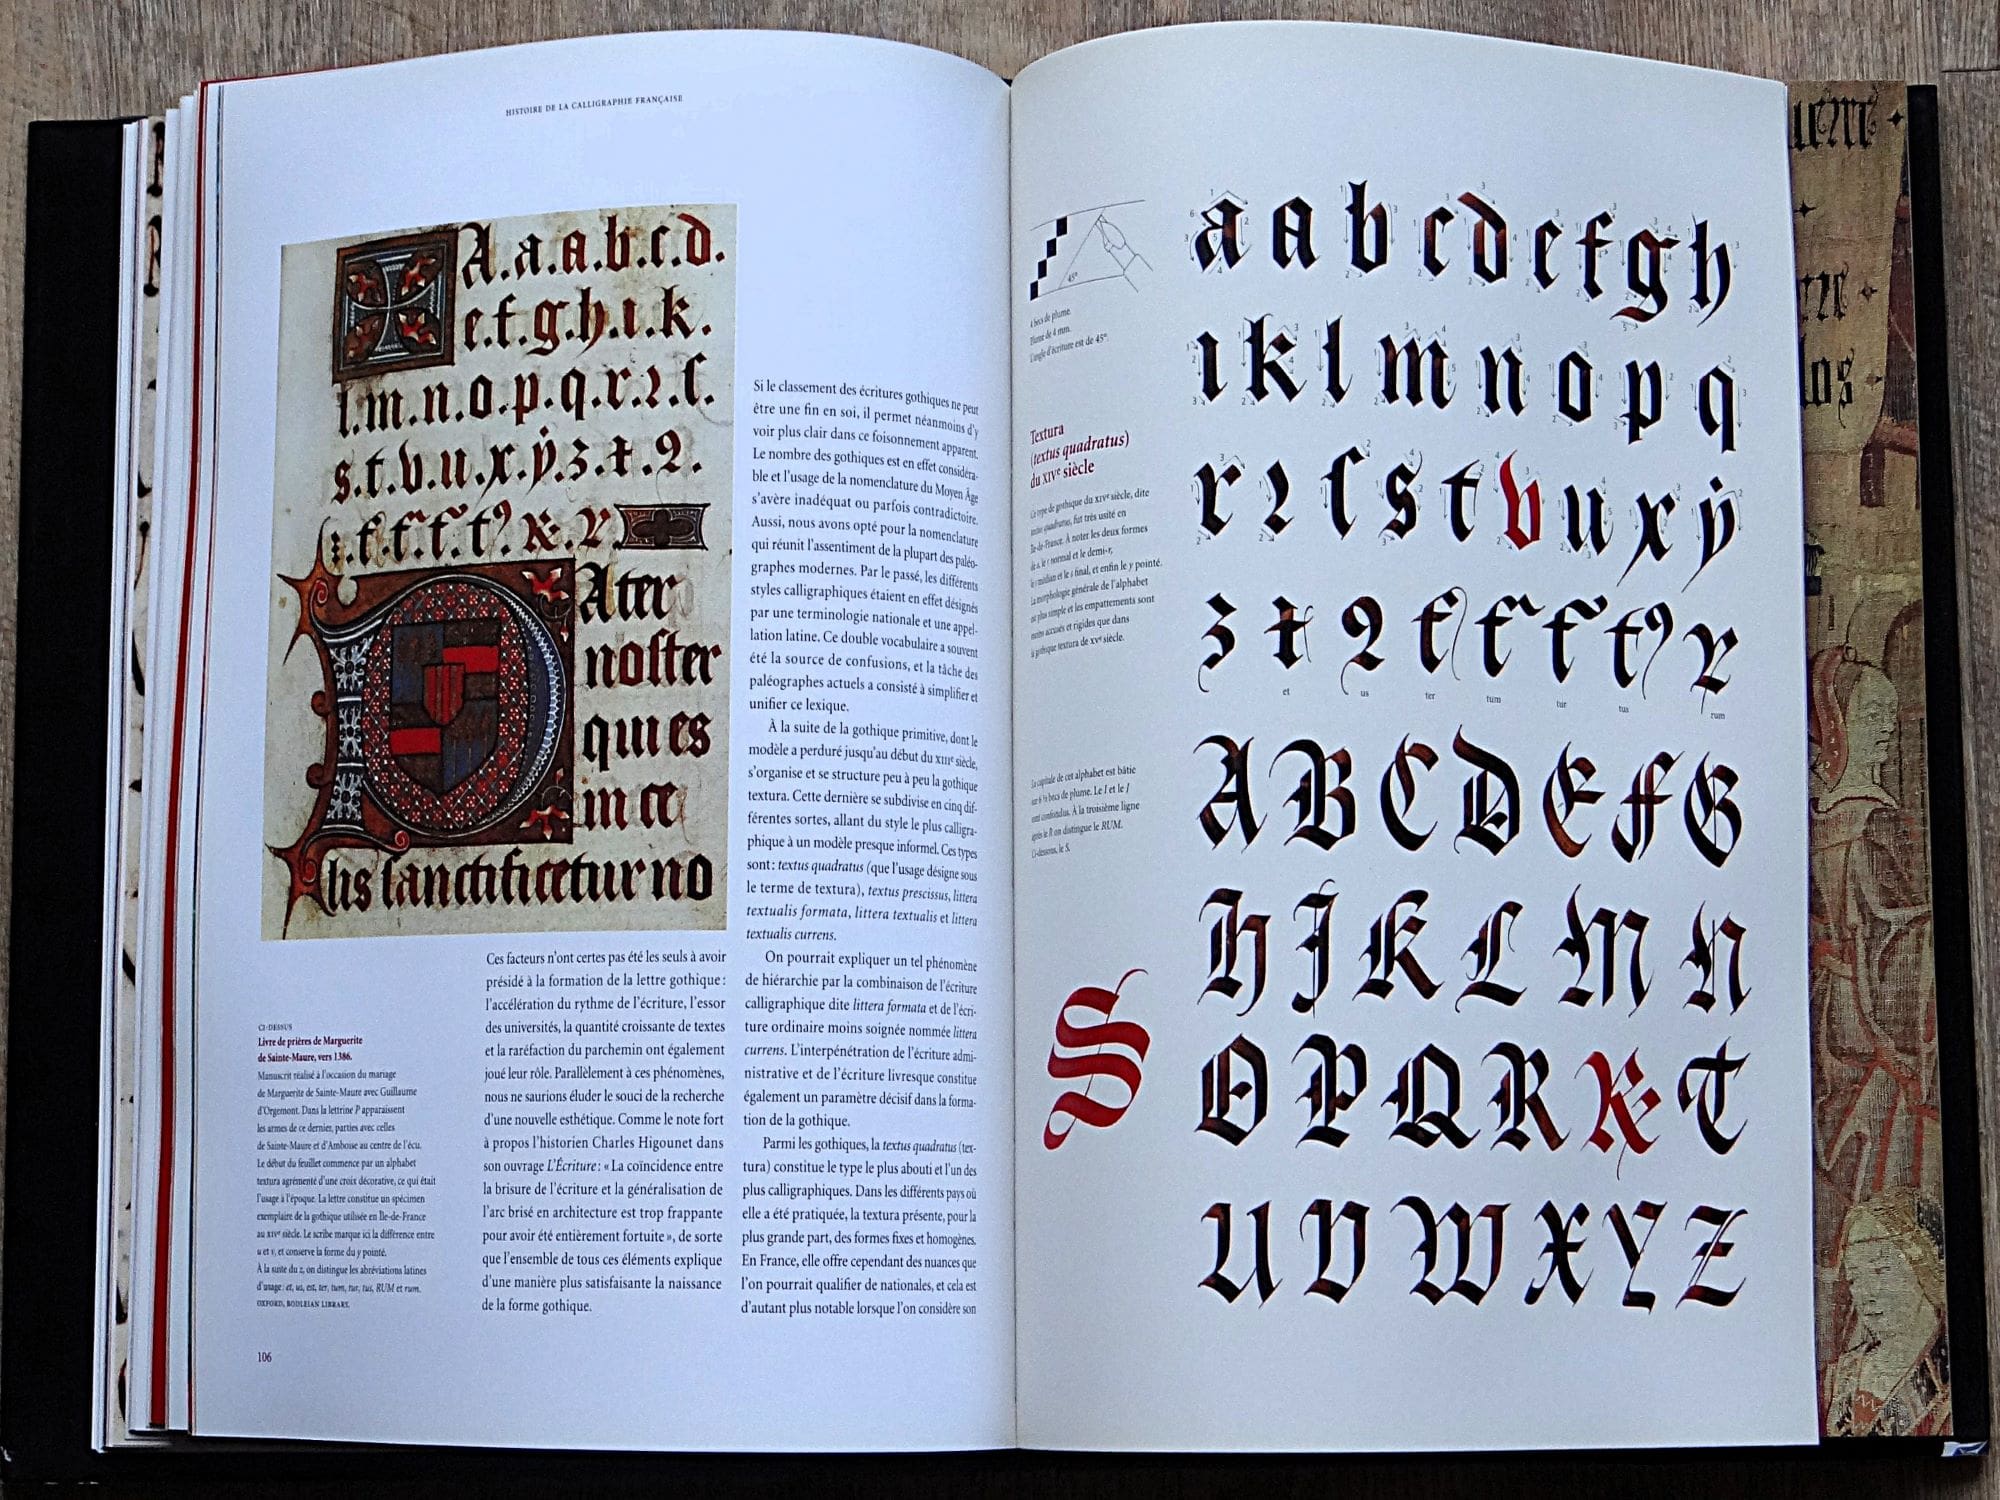 HISTOIRE DE LA CALLIGRAPHIE FRANÇAISE
A.a.a.b.c.d.
e.f.g.h.ı.k.
l.m.n.o.p.q.r.ꝛ.ſ.
s.t.v.u.x.ẏ.z.
Ater
noſter
qui es
in ce
lis ſanctificetur no
CI-DESSUS
Livre de prières de Marguerite
de Sainte-Maure, vers 1386.
Manuscrit réalisé à l'occasion du mariage
de Marguerite de Sainte-Maure avec Guillaume
d'Orgemont. Dans la lettrine P apparaissent
les armes de ce dernier, parties avec celles
de Sainte-Maure et d'Amboise au centre de l'écu.
Le début du feuillet commence par un alphabet
textura agrémenté d'une croix décorative, ce qui était
l'usage à l'époque. La lettre constitue un spécimen
exemplaire de la gothique utilisée en Île-de-France
au XIVe siècle. Le scribe marque ici la différence entre
u et v, et conserve la forme du y pointé.
À la suite du z, on distingue les abréviations latines
d'usage : et, us, est, ter, tum, tur, tus, RUM et rum.
OXFORD, BODLEIAN LIBRARY.
106
Ces facteurs n'ont certes pas été les seuls à avoir
présidé à la formation de la lettre gothique :
l'accélération du rythme de l'écriture, l'essor
des universités, la quantité croissante de textes
et la raréfaction du parchemin ont également
joué leur rôle. Parallèlement à ces phénomènes,
nous ne saurions éluder le souci de la recherche
d'une nouvelle esthétique. Comme le note fort
à propos l'historien Charles Higounet dans
son ouvrage L'Écriture : « La coïncidence entre
la brisure de l'écriture et la généralisation de
l'arc brisé en architecture est trop frappante
pour avoir été entièrement fortuite », de sorte
que l'ensemble de tous ces éléments explique
d'une manière plus satisfaisante la naissance
de la forme gothique.
Si le classement des écritures gothiques ne peut
être une fin en soi, il permet néanmoins d'y
voir plus clair dans ce foisonnement apparent.
Le nombre des gothiques est en effet considéra-
ble et l'usage de la nomenclature du Moyen Âge
s'avère inadéquat ou parfois contradictoire.
Aussi, nous avons opté pour la nomenclature
qui réunit l'assentiment de la plupart des paléo-
graphes modernes. Par le passé, les différents
styles calligraphiques étaient en effet désignés
par une terminologie nationale et une appel-
lation latine. Ce double vocabulaire a souvent
été la source de confusions, et la tâche des
paléographes actuels a consisté à simplifier et
unifier ce lexique.
À la suite de la gothique primitive, dont le
modèle a perduré jusqu'au début du XIIIe siècle,
s'organise et se structure peu à peu la gothique
textura. Cette dernière se subdivise en cinq dif-
férentes sortes, allant du style le plus calligra-
phique à un modèle presque informel. Ces types
sont : textus quadratus (que l'usage désigne sous
le terme de textura), textus prescissus, littera
textualis formata, littera textualis et littera
textualis currens.
On pourrait expliquer un tel phénomène
de hiérarchie par la combinaison de l'écriture
calligraphique dite littera formata et de l'écri-
ture ordinaire moins soignée nommée littera
currens. L'interpénétration de l'écriture admi-
nistrative et de l'écriture livresque constitue
également un paramètre décisif dans la forma-
tion de la gothique.
Parmi les gothiques, la textus quadratus (tex-
tura) constitue le type le plus abouti et l'un des
plus calligraphiques. Dans les différents pays où
elle a été pratiquée, la textura présente, pour la
plus grande part, des formes fixes et homogènes.
En France, elle offre cependant des nuances que
l'on pourrait qualifier de nationales, et cela est
d'autant plus notable lorsque l'on considère son
45°
4 becs de plume.
Plume de 4 mm.
L'angle d'écriture est de 45°.
Textura
(textus quadratus)
du XIVe siècle
Ce type de gothique du XIVe siècle, dite
textus quadratus, fut très usité en
Île-de-France. À noter les deux formes
de a, le r normal et le demi-r,
le s médian et le s final, et enfin le y pointé.
La morphologie générale de l'alphabet
est plus simple et les empattements sont
moins accusés et rigides que dans
la gothique textura de XVe siècle.
La capitale de cet alphabet est bâtie
sur 6 ½ becs de plume. Le I et le J
sont confondus. À la troisième ligne
après le R on distingue le RUM.
Ci-dessous, le S.
S
a a b c d e f g h
ı k l m n o p q
r ꝛ ſ s t v u x ẏ
z
et us ter tum tur tus rum
A B C D E F G
H J K L M N
O P Q R T
U V W X Y Z